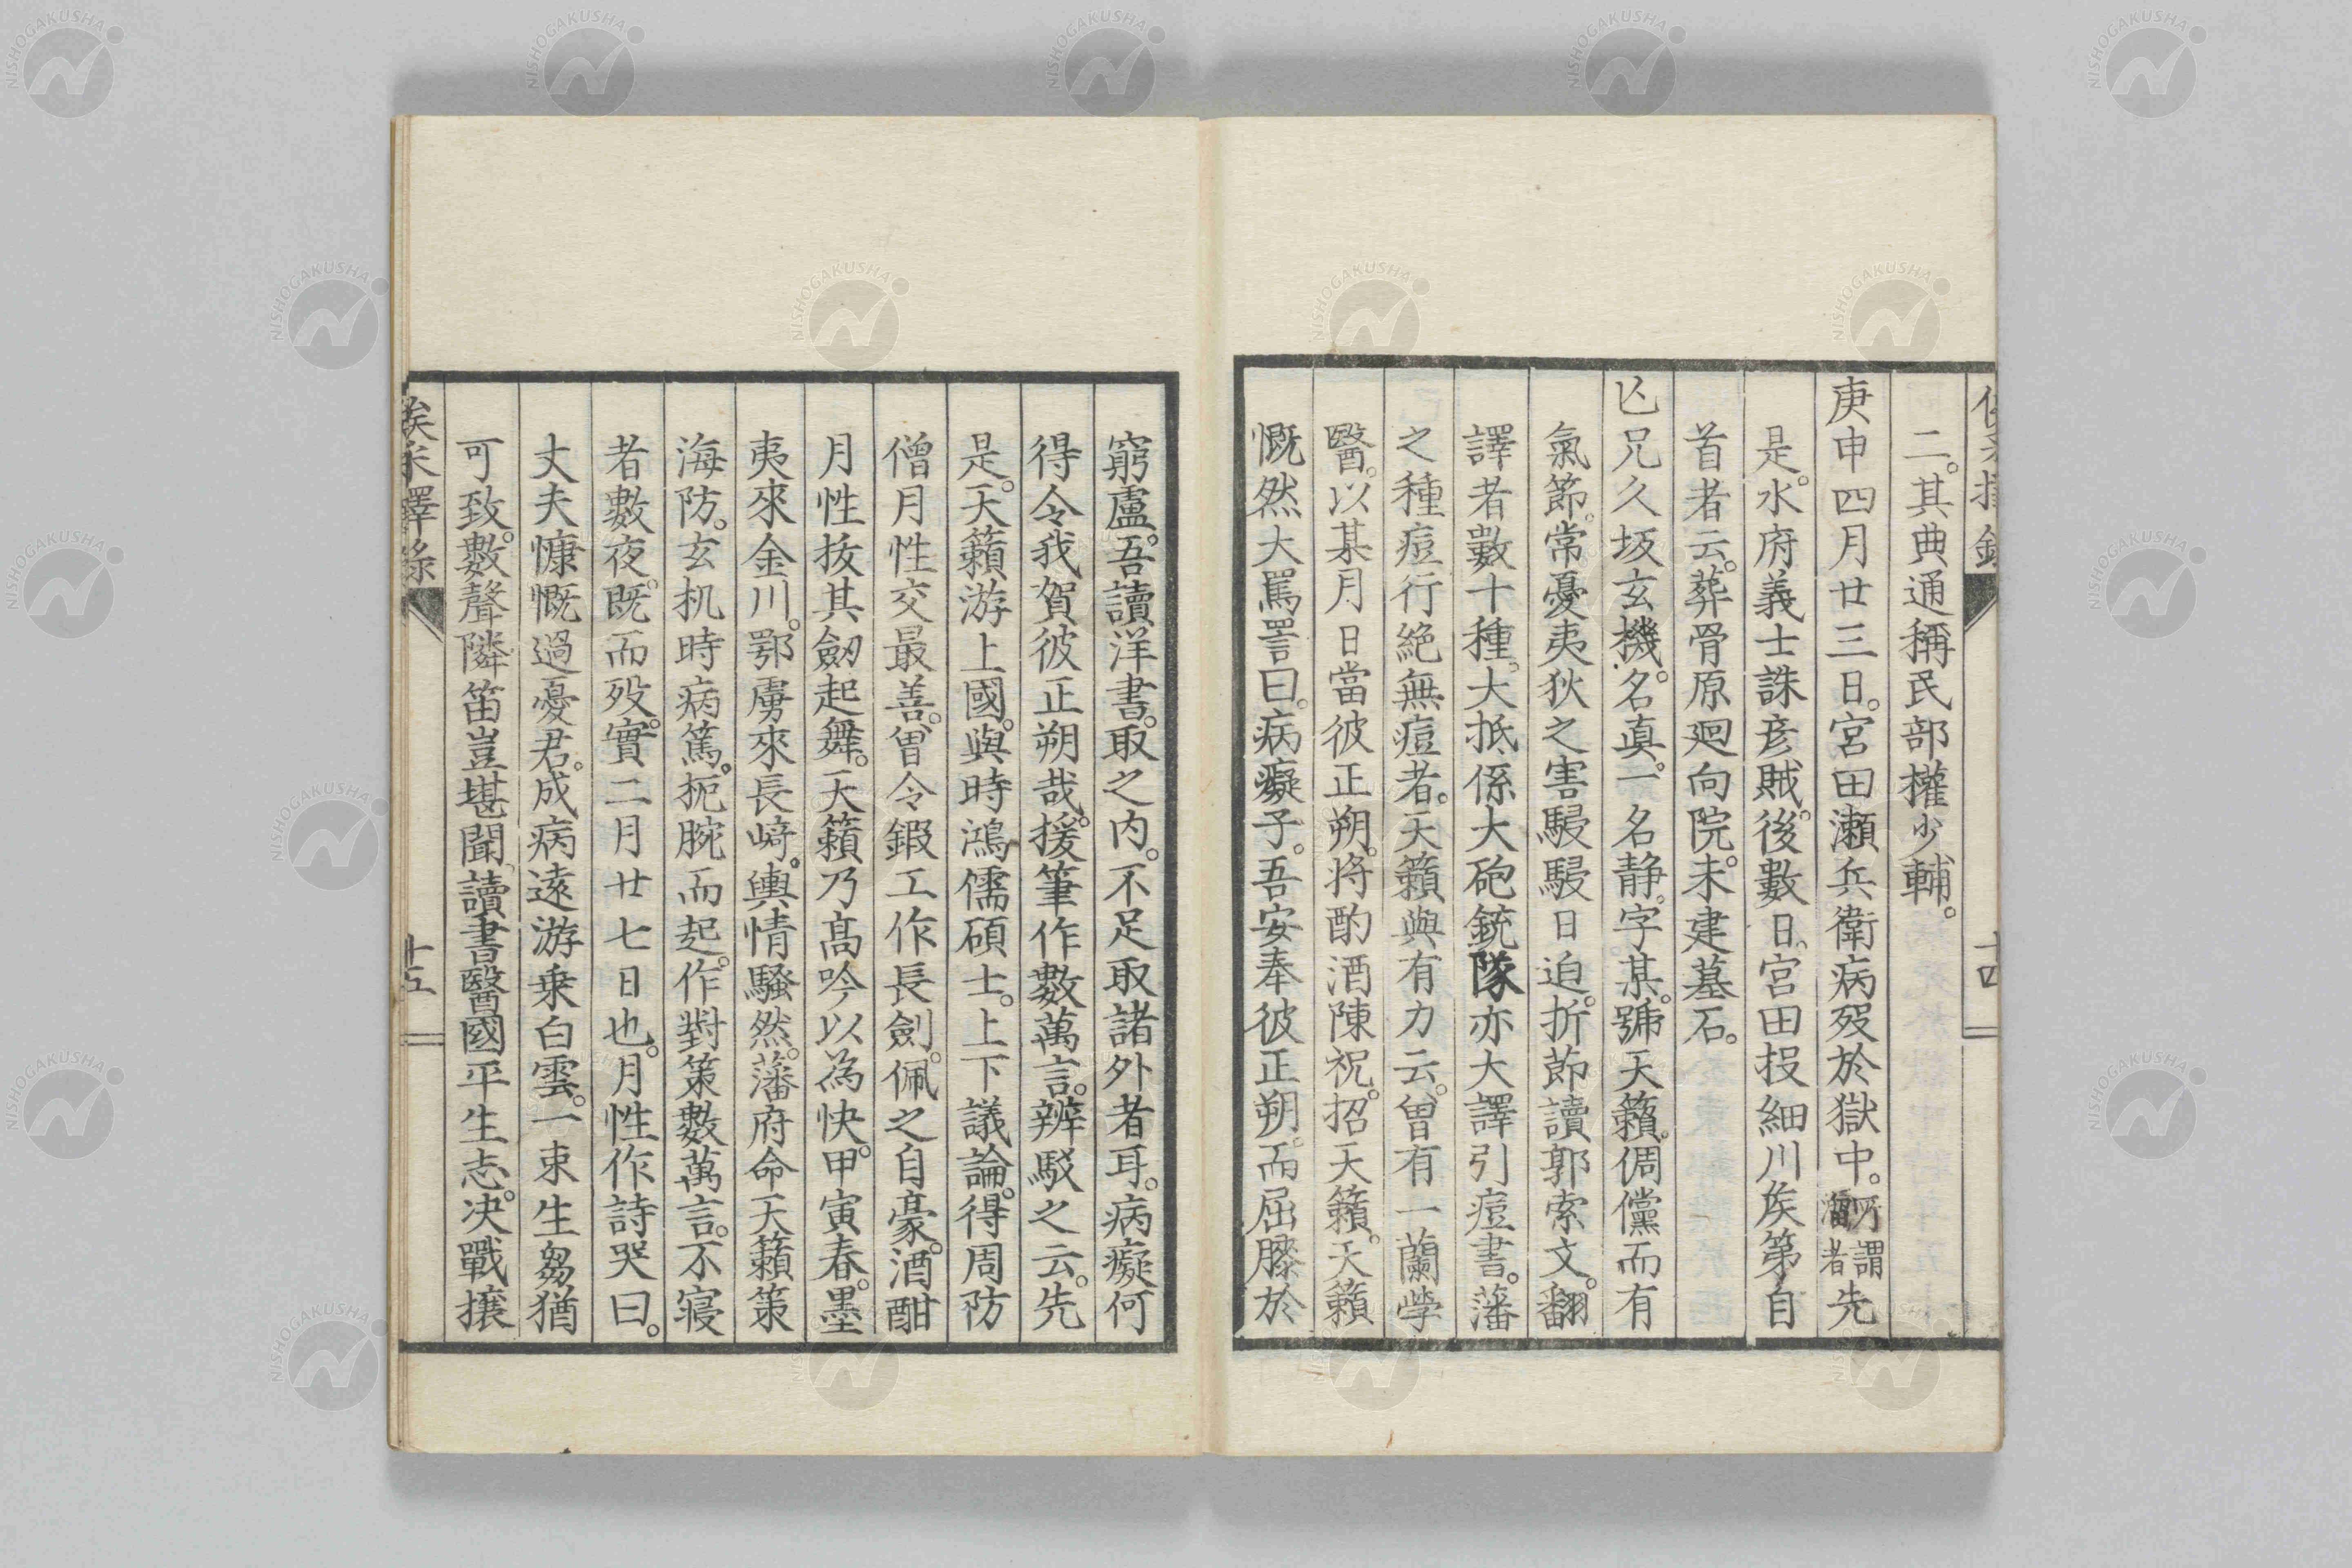 二。其典通稱民部權少輔。
庚申四月廿三日。宮田瀬兵衛病歿於獄中。所謂瘤者先
是。水府義士誅彦賊。後數日、宮田投細川侯第。自
首者云。葬骨原廻向院。未建墓石。
亾兄久坂玄機。名真。一名静。字某。號天籟。倜儻而有
氣節。常憂夷狄之害駸駸日迫。折節讀郭索文。翻
譯者數十種。大抵係大砲銃隊亦大譯引痘書。藩
之種痘行絶無痘者。天籟與有力云。曽有一蘭學
醫。以某月日當彼正朔。将酌酒陳祝。招天籟。天籟
慨然大罵詈曰。病癡子。吾安奉彼正朔。而屈膝於
窮盧。吾讀洋書。取之内。不足取諸外者耳。病癡何
得令我賀彼正朔哉。援筆作數萬言。辨駁之云。先
是。天籟游上國。與時鴻儒碩士。上下議論。得周防
僧月性交最善。曽令鍜工作長劍。佩之自豪。酒酣
月性抜其劔起舞。天籟乃高吟以為快。甲寅春。墨
夷來金川。鄂虜來長﨑。輿情騒然。藩府命天籟策
海防。玄机時病篤。扼腕而起。作對策數萬言。不寝
者數夜。既而歿。實二月廿七日也。月性作詩哭曰。
丈夫慷慨過憂君。成病遠游乗白雲。一束生芻猶
可致。數聲隣笛豈堪聞。讀書醫國平生志。決戰攘
俟采擇錄
十四
十五
NISHOGAKUSHA